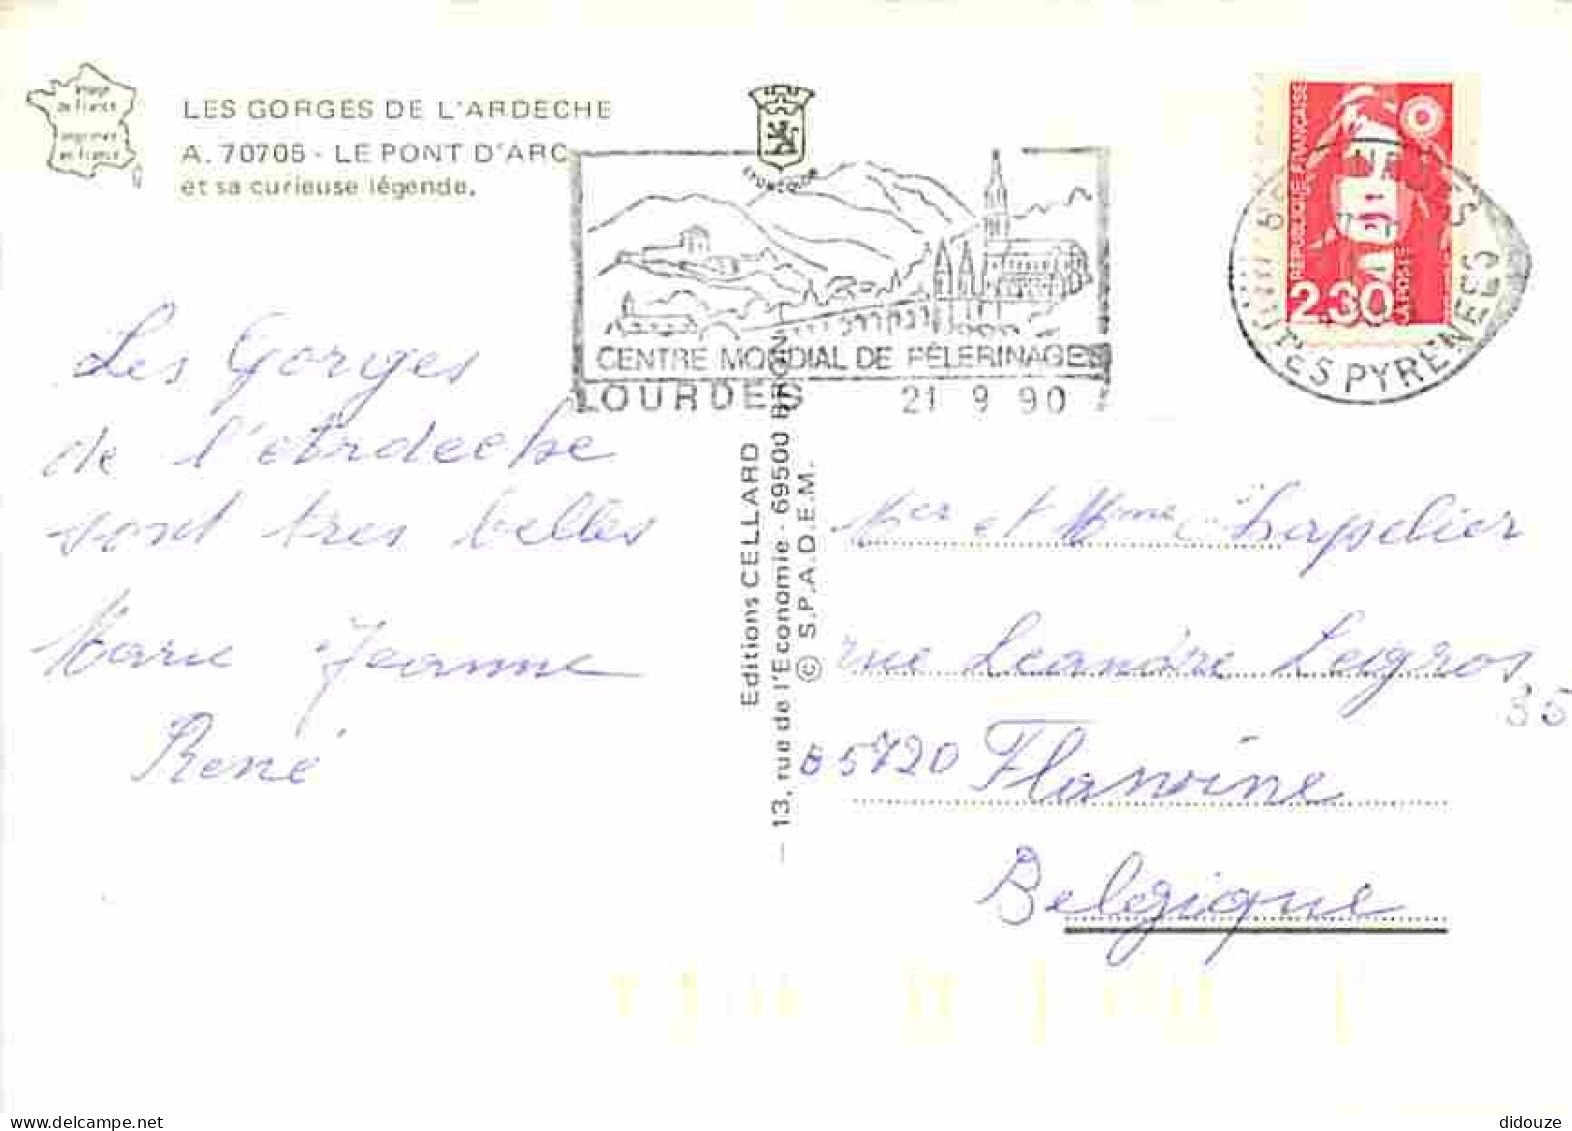 Image
de France
imprimée
en France
LES GORGES DE L'ARDECHE
A. 70705 - LE PONT D'ARC
et sa curieuse légende.
LYONCOLOR
CENTRE MONDIAL DE PÉLERINAGES
LOURDES 21 9 90
RÉPUBLIQUE FRANÇAISE
2,30
LA POSTE
HTES PYRENEES
Les Gorges
de l'Ardeche
sont tres belles
Marie Jeanne
René
Editions CELLARD
13, rue de l'Economie - 69500 BRON
© S.P.A.D.E.M.
Mer et Mme Chapelier
rue Leandre Legros
35
B5720 Flawine
Belgique
www.delcampe.net
didouze